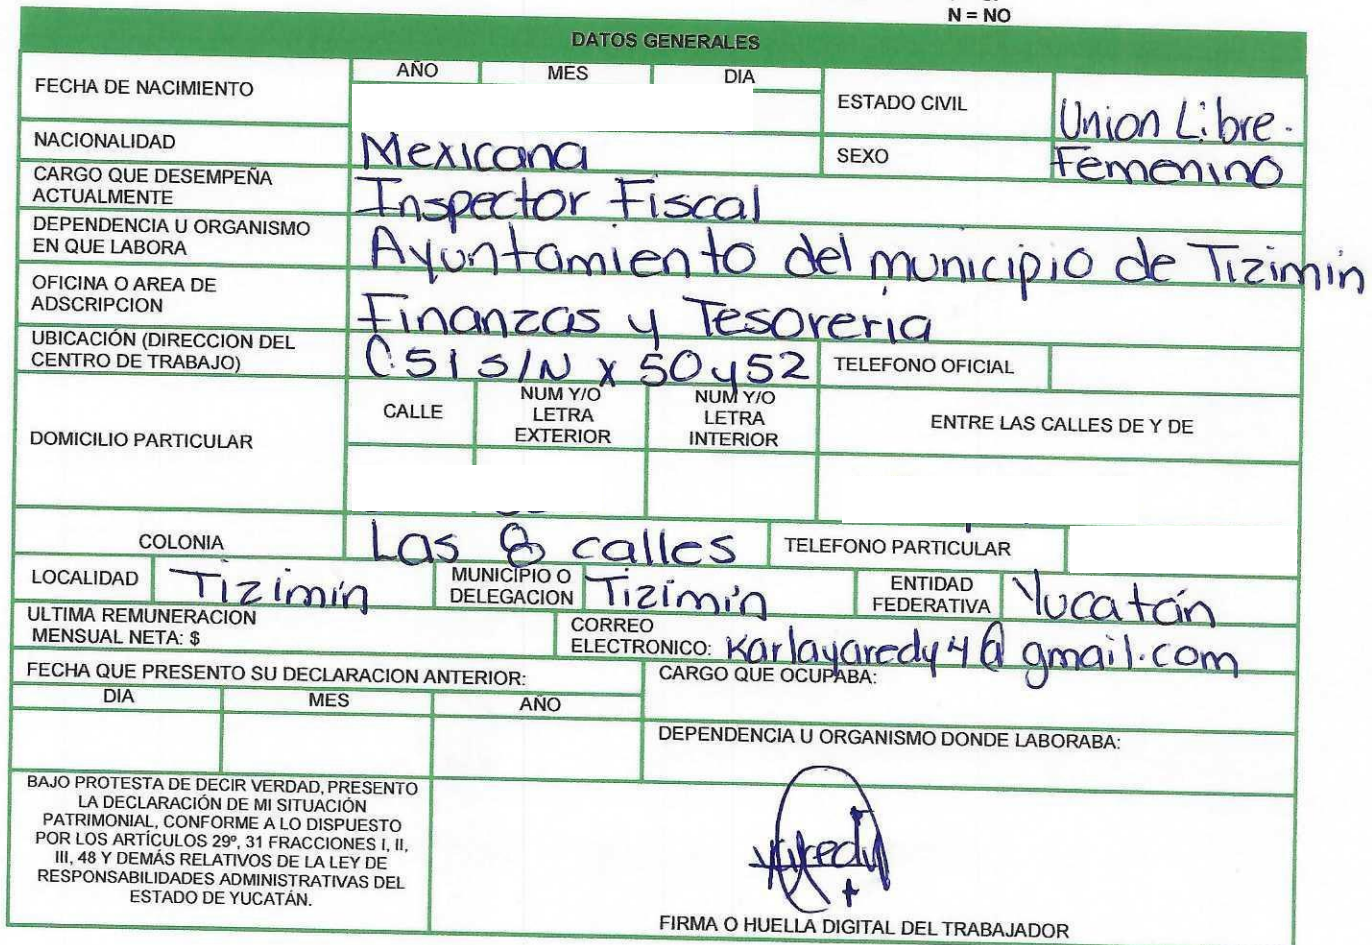 N = NO
DATOS GENERALES
FECHA DE NACIMIENTO
AÑO MES DIA
ESTADO CIVIL Union Libre.
NACIONALIDAD Mexicana
SEXO Femenino
CARGO QUE DESEMPEÑA
ACTUALMENTE Inspector Fiscal
DEPENDENCIA U ORGANISMO
EN QUE LABORA Ayuntamiento del municipio de Tizimin
OFICINA O AREA DE
ADSCRIPCION Finanzas y Tesoreria
UBICACIÓN (DIRECCION DEL
CENTRO DE TRABAJO) C 51 S/N x 50 y 52 TELEFONO OFICIAL
DOMICILIO PARTICULAR
CALLE
NUM Y/O
LETRA
EXTERIOR
NUM Y/O
LETRA
INTERIOR
ENTRE LAS CALLES DE Y DE
COLONIA Las 8 calles TELEFONO PARTICULAR
LOCALIDAD Tizimín
MUNICIPIO O
DELEGACION Tizimín
ENTIDAD
FEDERATIVA Yucatán
ULTIMA REMUNERACION
MENSUAL NETA: $
CORREO
ELECTRONICO: karlayaredy4@gmail.com
FECHA QUE PRESENTO SU DECLARACION ANTERIOR:
DIA MES AÑO
CARGO QUE OCUPABA:
DEPENDENCIA U ORGANISMO DONDE LABORABA:
BAJO PROTESTA DE DECIR VERDAD, PRESENTO
LA DECLARACIÓN DE MI SITUACIÓN
PATRIMONIAL, CONFORME A LO DISPUESTO
POR LOS ARTÍCULOS 29º, 31 FRACCIONES I, II,
III, 48 Y DEMÁS RELATIVOS DE LA LEY DE
RESPONSABILIDADES ADMINISTRATIVAS DEL
ESTADO DE YUCATÁN.
FIRMA O HUELLA DIGITAL DEL TRABAJADOR